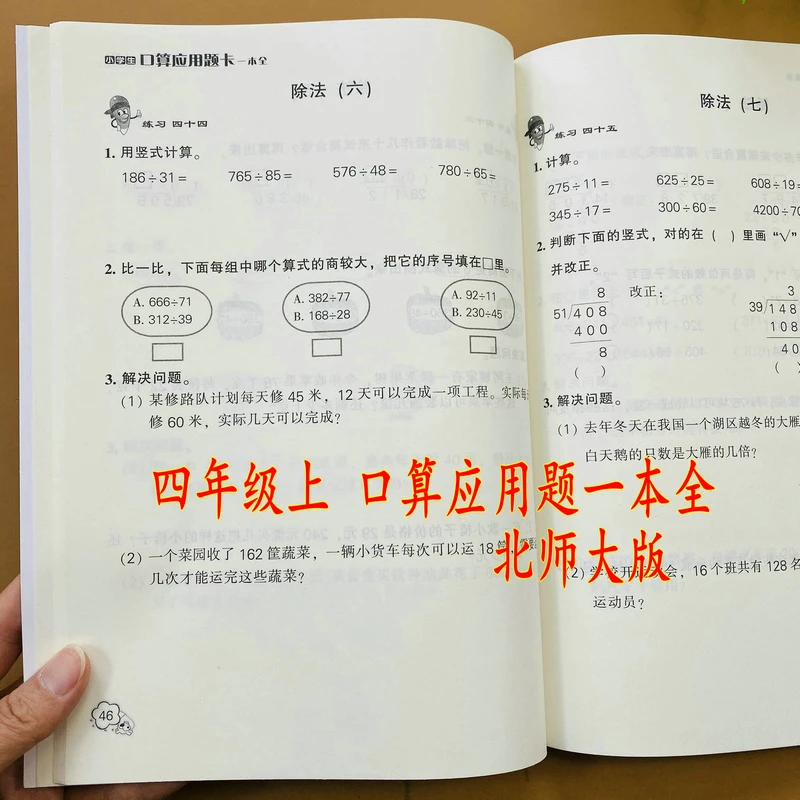 小学生口算应用题卡一本全
除法（六）
练习 四十四
1. 用竖式计算。
186÷31= 765÷85= 576÷48= 780÷65=
2. 比一比，下面每组中哪个算式的商较大，把它的序号填在□里。
A. 666÷71
B. 312÷39
A. 382÷77
B. 168÷28
A. 92÷11
B. 230÷45
3. 解决问题。
（1）某修路队计划每天修 45 米，12 天可以完成一项工程。实际每
修 60 米，实际几天可以完成？
（2）一个菜园收了 162 筐蔬菜，一辆小货车每次可以运 18
几次才能运完这些蔬菜？
46
除法（七）
练习 四十五
1. 计算。
275÷11= 625÷25= 608÷19=
345÷17= 300÷60= 4200÷70
2. 判断下面的竖式，对的在（ ）里画“√”
并改正。
8
51 408
400
8
（ ）
改正：
3
39 148
108
40
（ ）
3. 解决问题。
（1）去年冬天在我国一个湖区越冬的大雁
白天鹅的只数是大雁的几倍？
（2）学校开运动会，16 个班共有 128 名
运动员？
四年级上 口算应用题一本全
北师大版